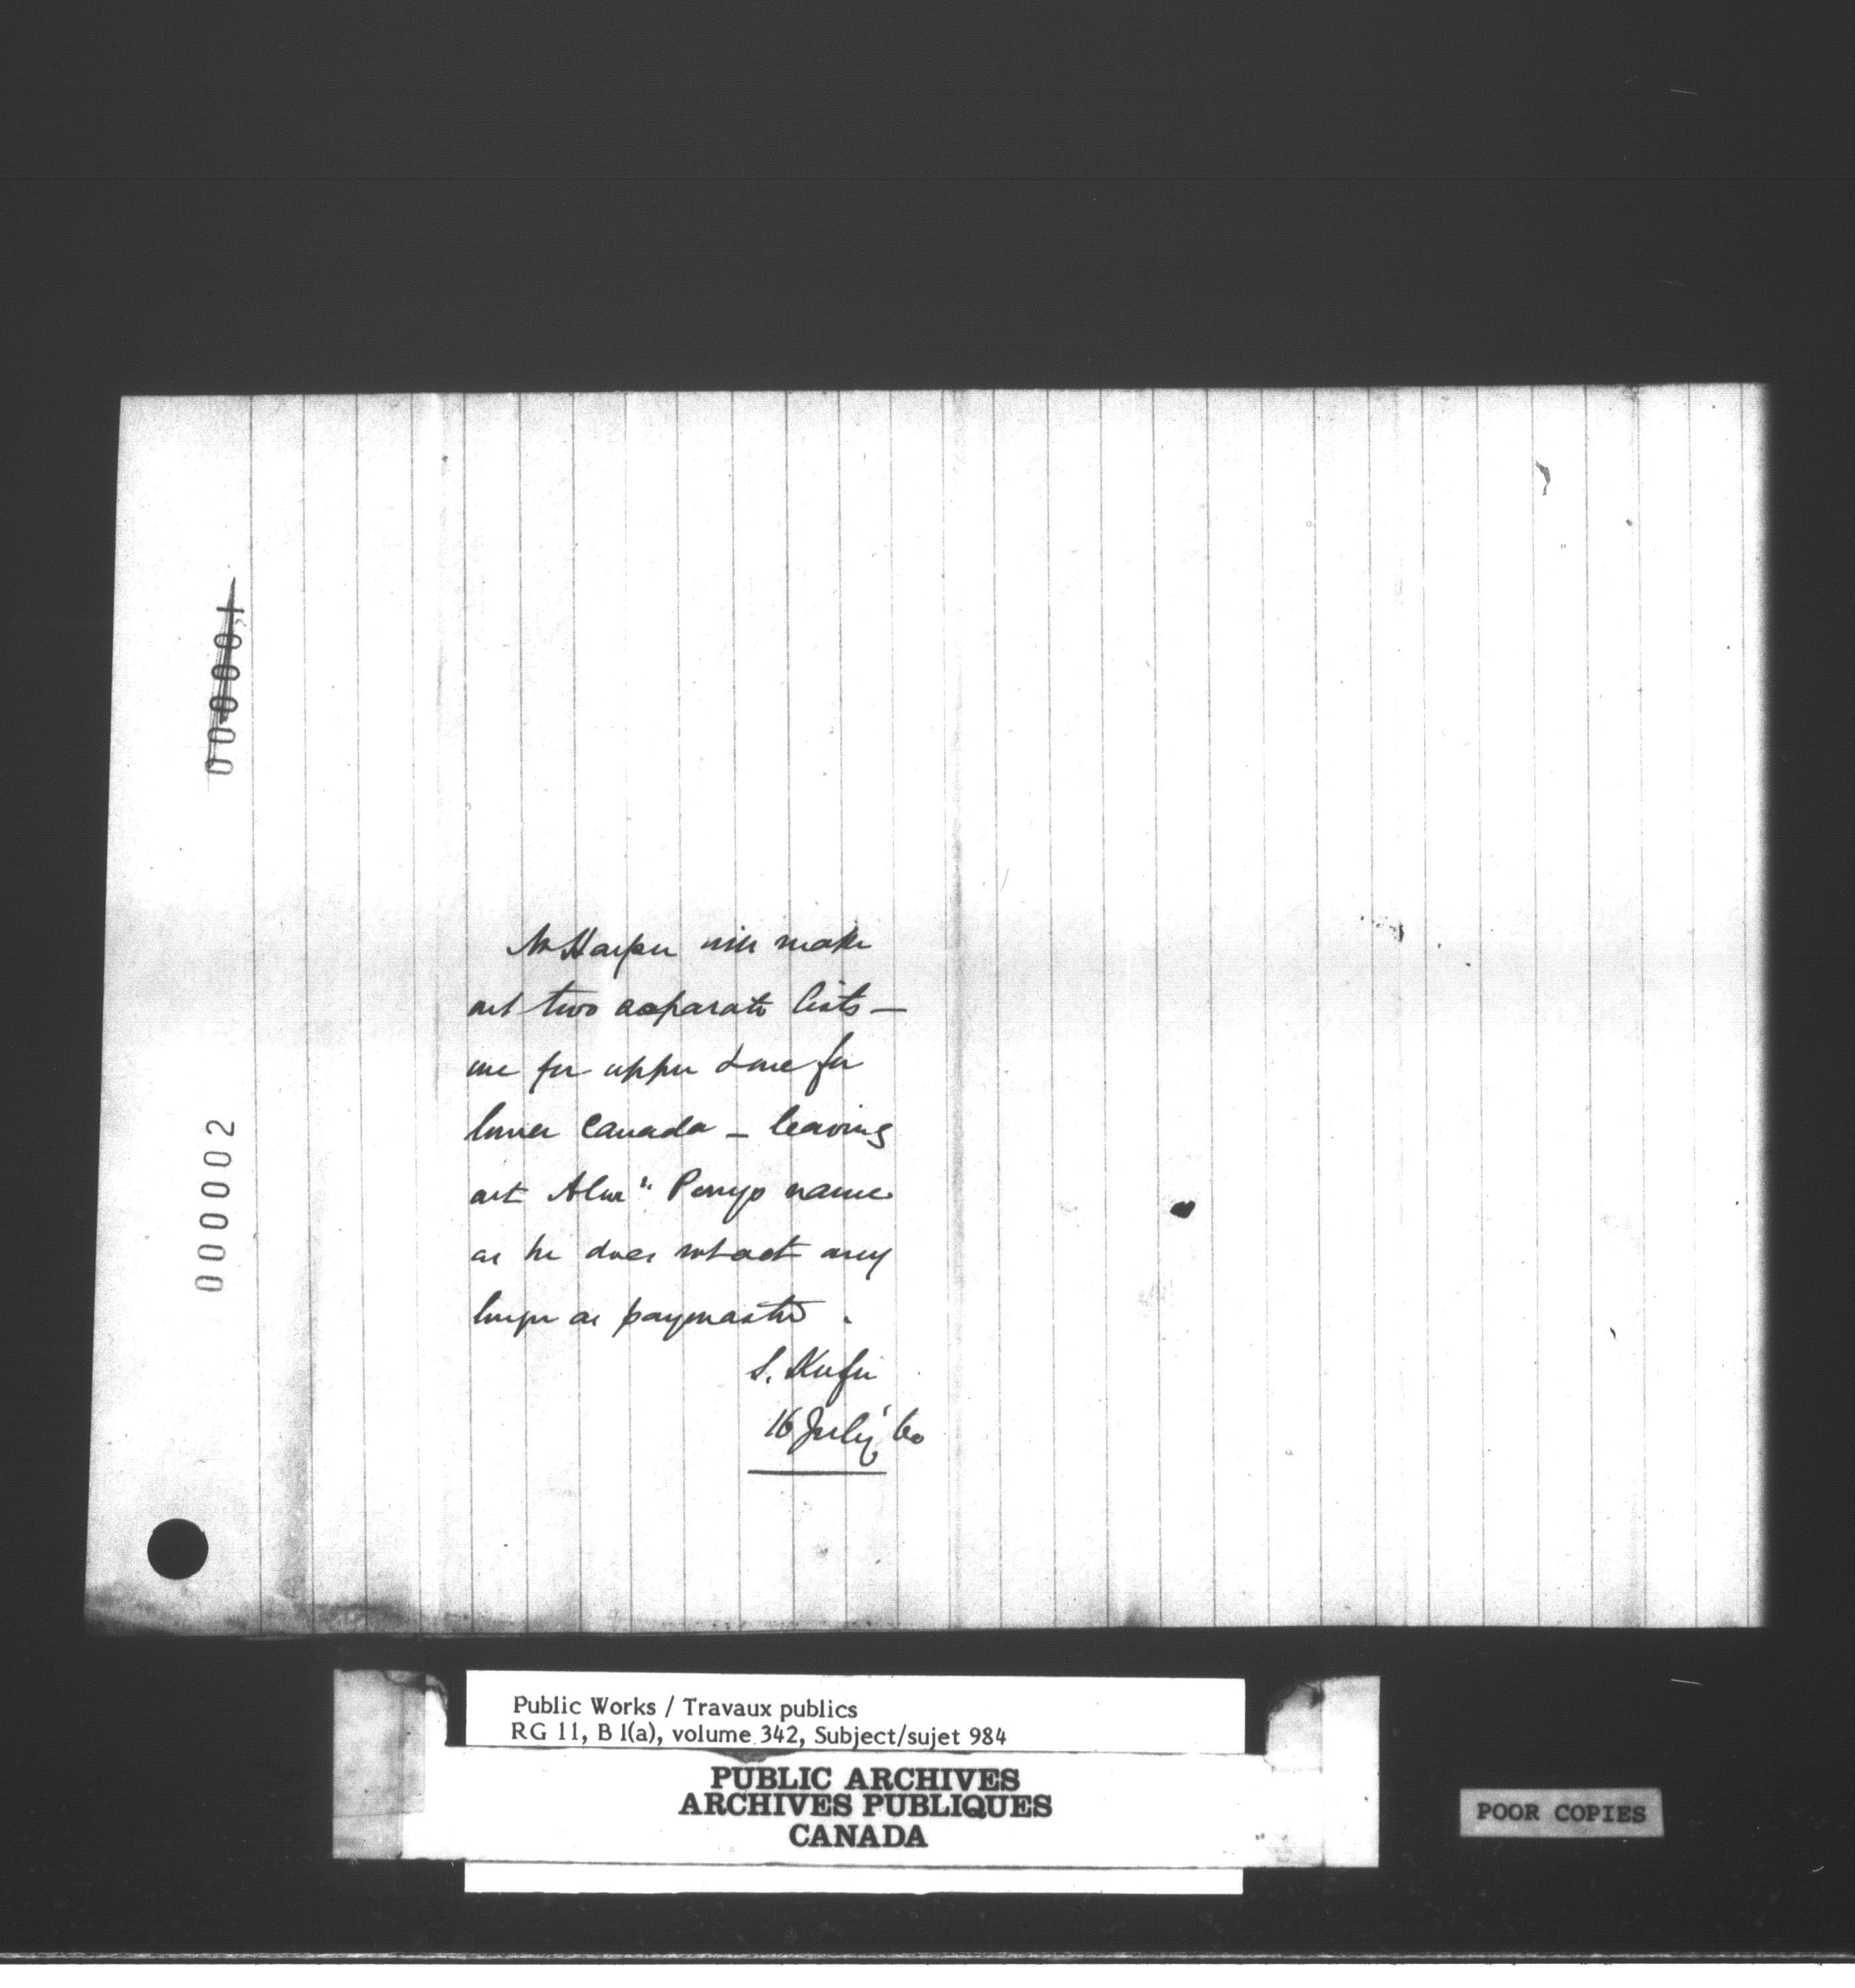 000001
000002
Mr Harper will make
out two separate lists —
one for upper & one for
lower Canada — leaving
out Alexr Perrys name
as he does not act any
longer as paymaster.
S. Keefer
16 July '60
Public Works / Travaux publics
RG 11, B 1(a), volume 342, Subject/sujet 984
PUBLIC ARCHIVES
ARCHIVES PUBLIQUES
CANADA
POOR COPIES